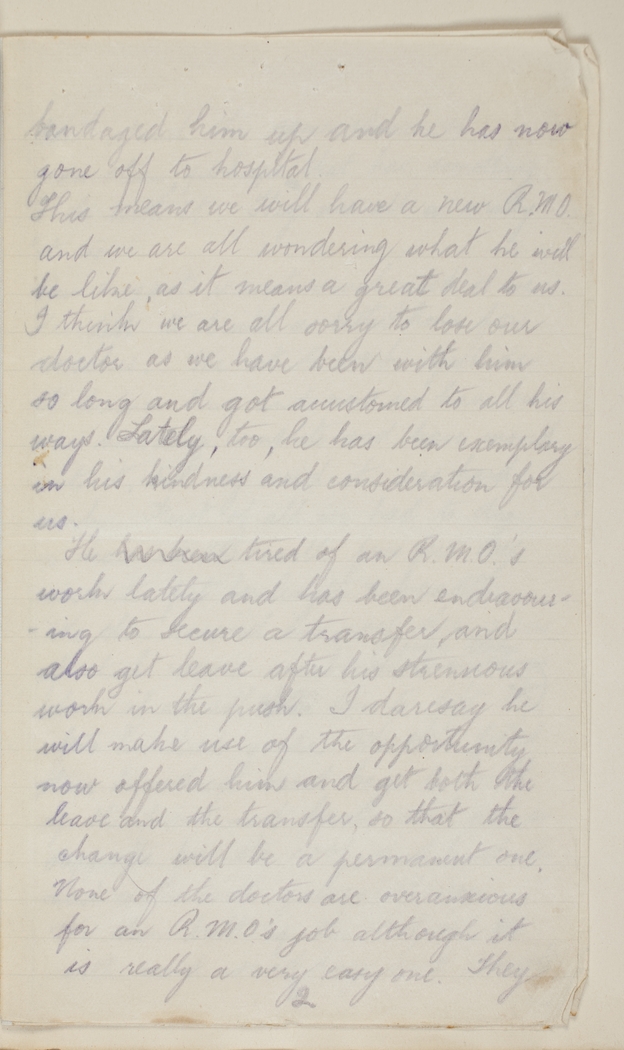 bandaged him up and he has now
gone off to hospital.
This means we will have a new R.M.O.
and we are all wondering what he will
be like, as it means a great deal to us.
I think we are all sorry to lose our
doctor as we have been with him
so long and got accustomed to all his
ways. Lately, too, he has been exemplary
in his kindness and consideration for
us.
He has been tired of an R.M.O.'s
work lately and has been endeavour-
-ing to secure a transfer, and
also get leave after his strenuous
work in the push. I daresay he
will make use of the opportunity
now offered him and get both the
leave and the transfer, so that the
change will be a permanent one.
None of the doctors are overanxious
for an R.M.O's job although it
is really a very easy one. They
2